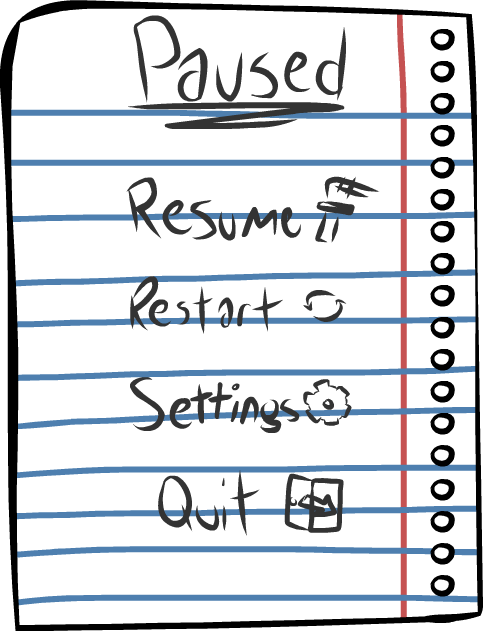 Paused
Resume
Restart
Settings
Quit